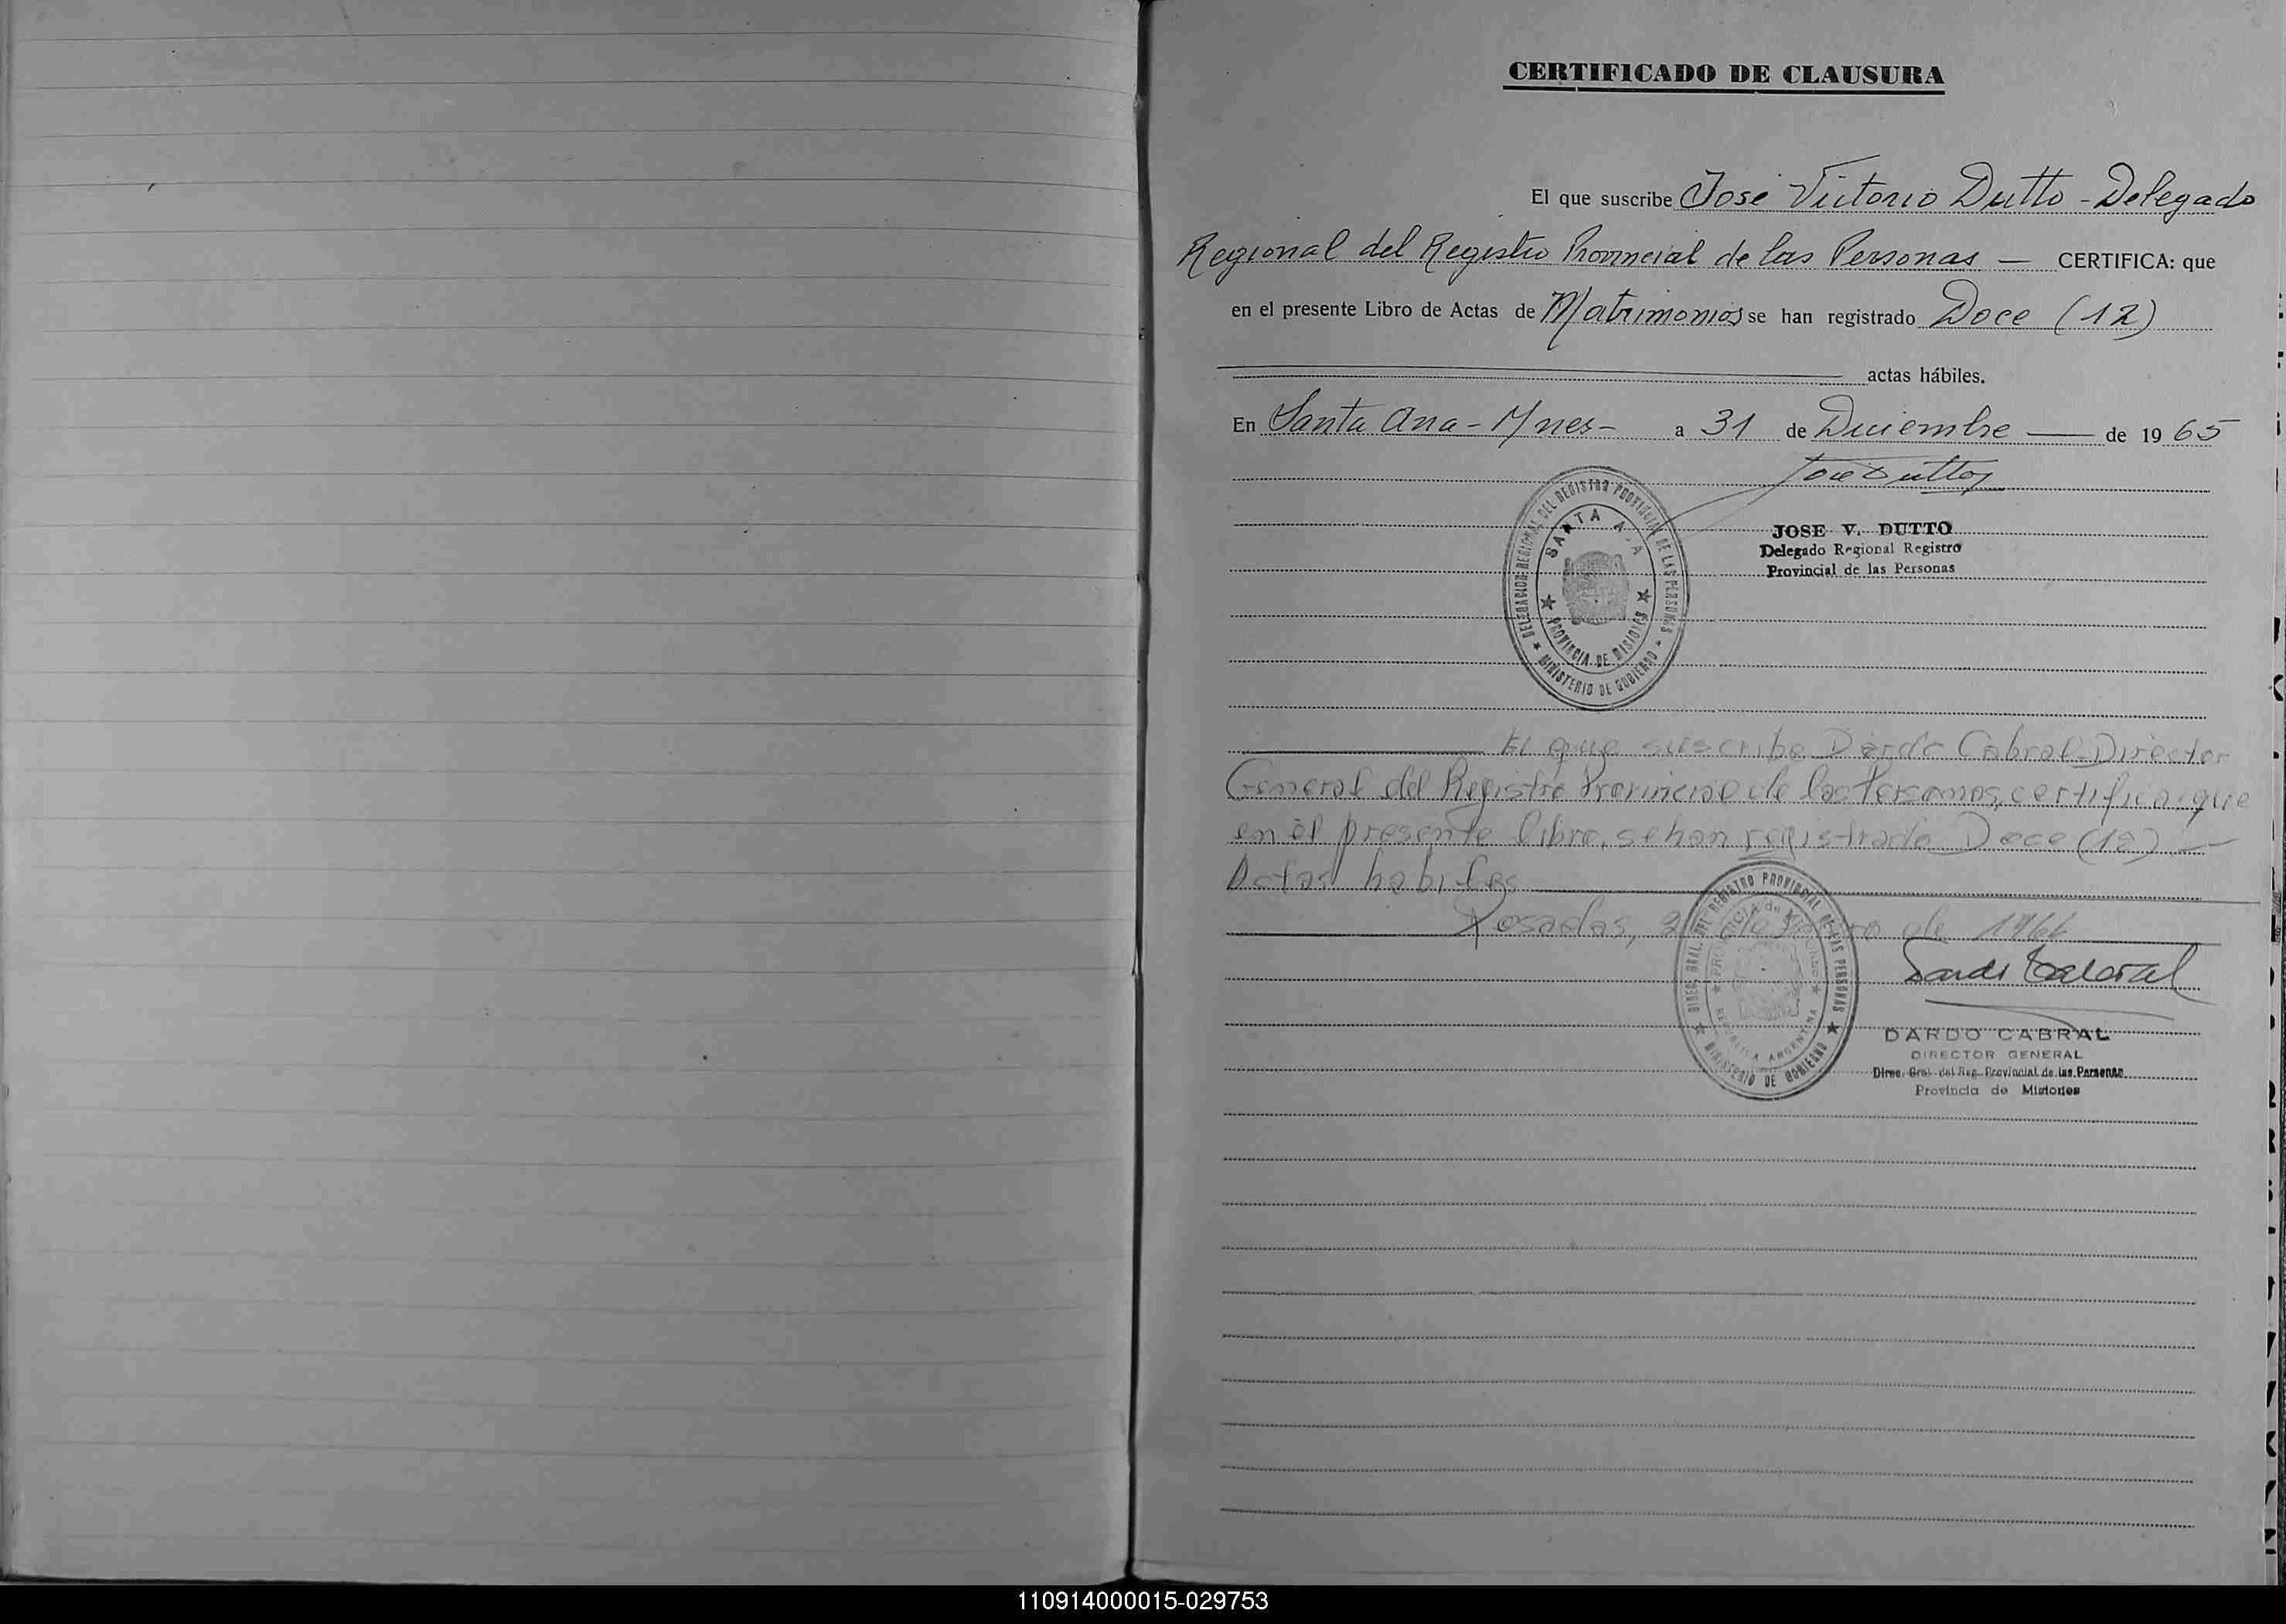 CERTIFICADO DE CLAUSURA
El que suscribe José Victorio Dutto - Delegado
Regional del Registro Provincial de las Personas — CERTIFICA: que
en el presente Libro de Actas de Matrimonios se han registrado Doce (12)
actas hábiles.
En Santa Ana - Mnes - a 31 de Diciembre — de 1965
Jose Dutto
DELEGACION REGIONAL DEL REGISTRO PROVINCIAL DE LAS PERSONAS
SANTA ANA
PROVINCIA DE MISIONES
MINISTERIO DE GOBIERNO
JOSE V. DUTTO
Delegado Regional Registro
Provincial de las Personas
El que suscribe Dardo Cabral Director
General del Registro Provincial de las Personas, certifica: que
en el presente libro, se han registrado Doce (12) —
Actas habiles
Posadas, de 1966
Dardo Cabral
DIREC. GRAL. DEL REGISTRO PROVINCIAL DE LAS PERSONAS
PROVINCIA de MISIONES
REPUBLICA ARGENTINA
MINISTERIO DE GOBIERNO
DARDO CABRAL
DIRECTOR GENERAL
Direc. Gral. del Reg. Provincial de las Personas
Provincia de Misiones
110914000015-029753